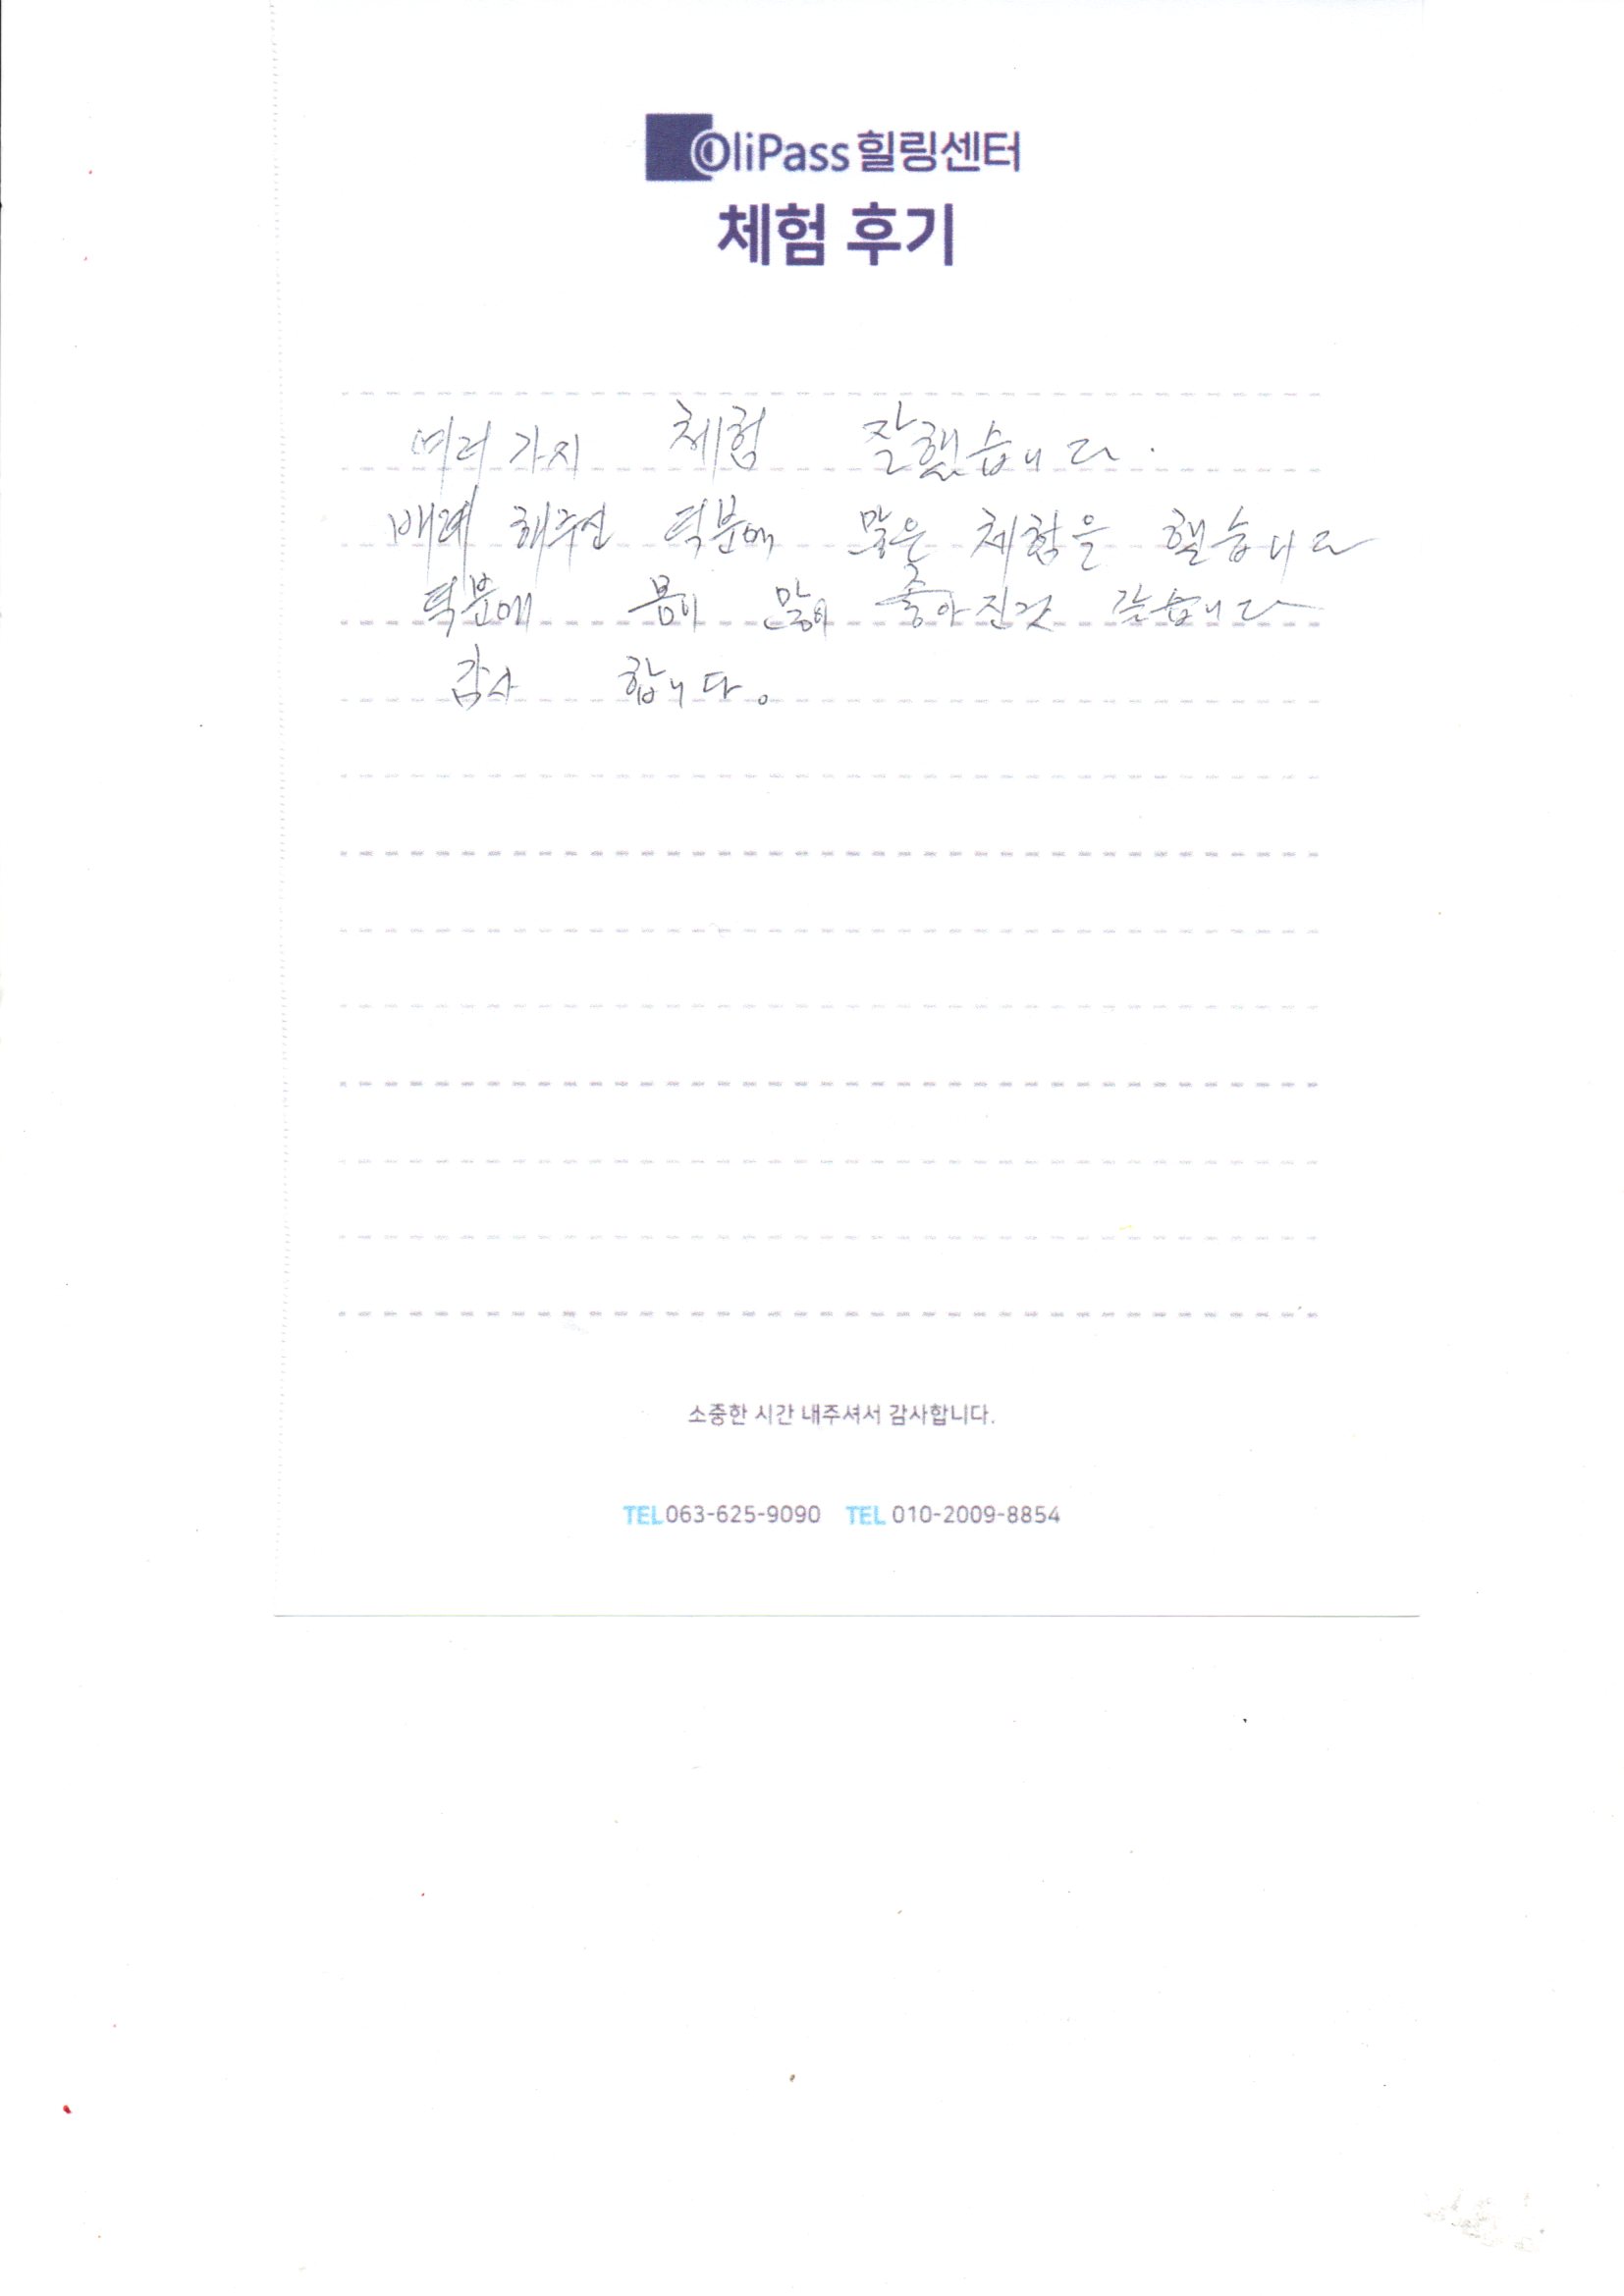 OliPass 힐링센터
체험 후기
여러 가지 체험 잘했습니다.
배려 해주신 덕분에 많은 체험을 했습니다
덕분에 몸이 많이 좋아진것 같습니다
감사 합니다.
소중한 시간 내주셔서 감사합니다.
TEL 063-625-9090 TEL 010-2009-8854